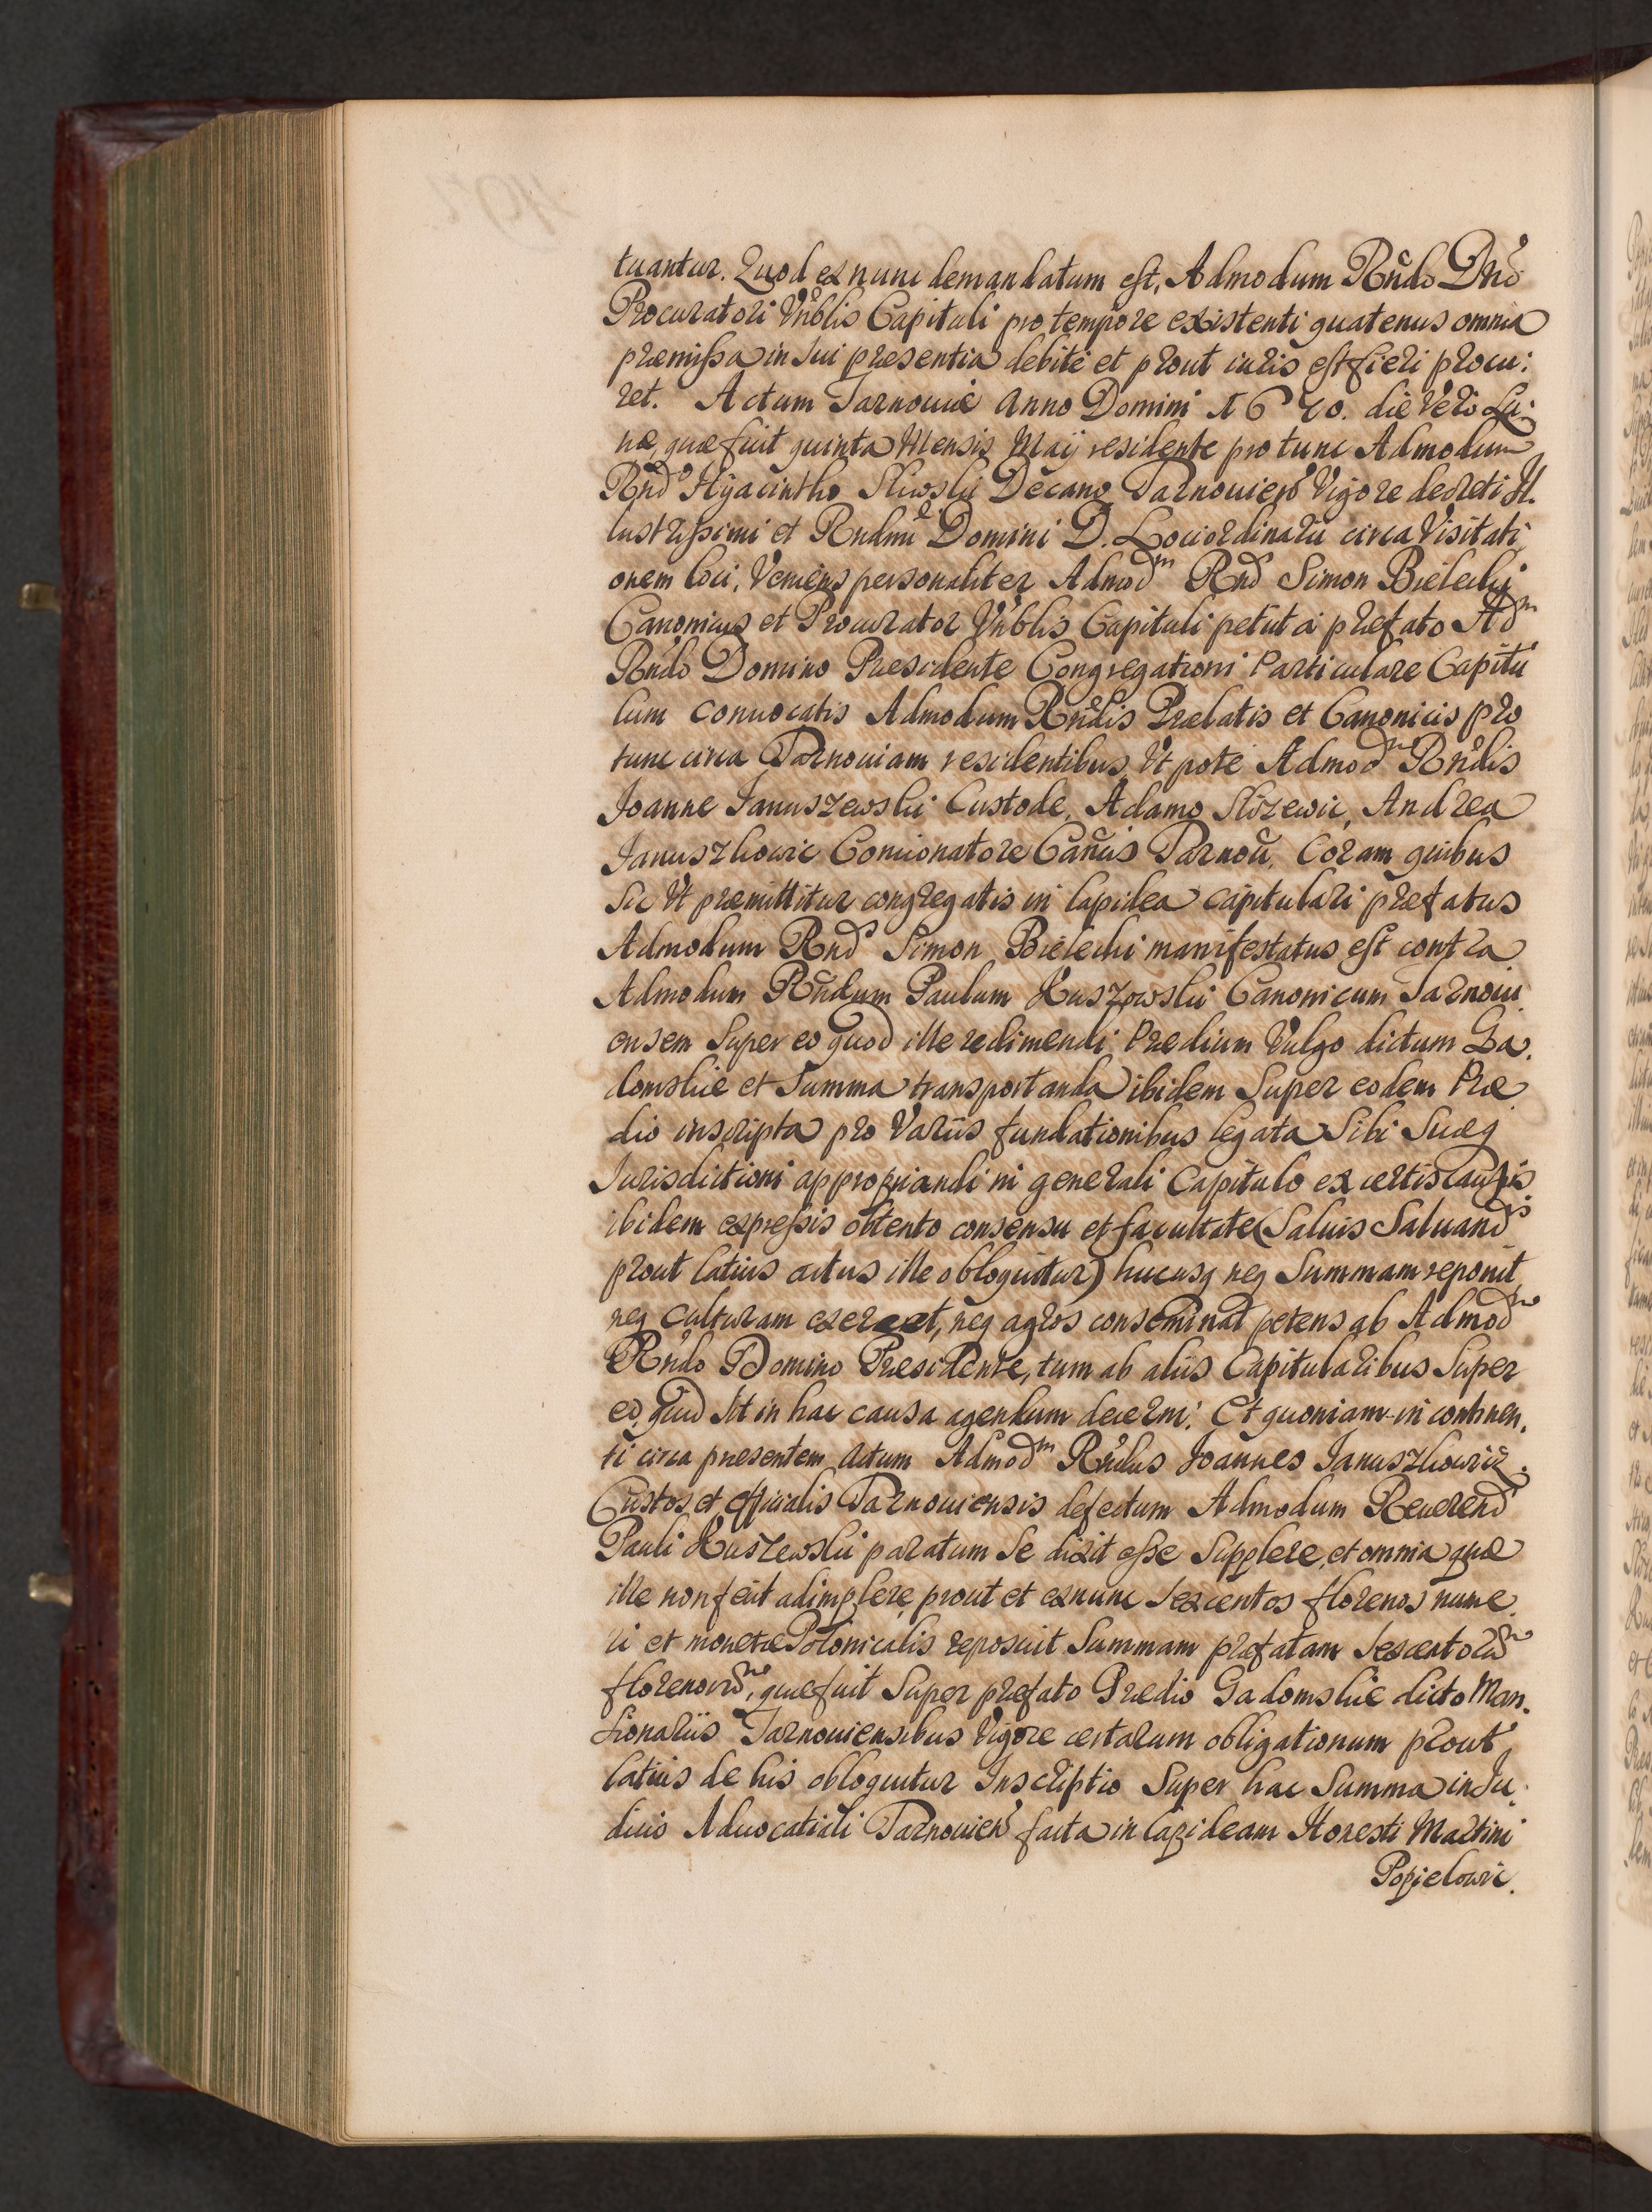 tuantur. Quod ex nunc demandatum est, Admodum Rndo Dno
Procuratori Vnblis Capituli pro tempore existenti quatenus omnia
præmissa in sui presentia debite et prout iuris est fieri procu:
ret. Actum Tarnouiæ Anno Domini die Vero Lu:
næ, quæ fuit quinta Mensis Maij residente pro tunc Admodum
Rndo Hyacintho Sliwski Decano Tarnouien Vigore decreti Il.
lustrissimi et Rndmi Domini D. Loci ordinarii circa Visitati
onem loci, Veniens personaliter Admodm Rnd Simon Bielecki
Canonicus et Procurator Vnblis Capituli petiit a præfato Adm
Rndo Domino Præsidente Congregationi Particulare Capitu
lum conuocatis Admodum Rndis Prælatis et Canonicis pro
tunc circa Tarnouiam residentibus, Vt pote Admodm Rndis
Joanne Januszewski Custode, Adamo Slizewic, Andrea
Januszkowic Concionatore Cancis Tarnou, Coram quibus
sic Vt præmittitur congregatis in lapidea capitulari præfatus
Admodum Rnds Simon Bielecki manifestatus est contra
Admodum Rndum Paulum Kuszowski Canonicum Tarnoui
ensem Super eo quod ille redimendi Prædium Vulgo dictum Ga.
domskie et Summa transportanda ibidem Super eodem Præ
dio inscripta pro Variis fundationibus legata Sibi Suæq
Jurisdictioni appropriandi in generali Capitulo ex certis causis
ibidem expressis obtento consensu et facultate (Saluis Saluand
prout latius actus ille obloquitur) hucusq neq Summam reponit
neq culturam exercet, neq agros conseminat petens ab Admodm
Rndo Domino Præsidente, tum ab aliis Capitularibus Super
eo, quid sit in hac causa agendum decerni: Et quoniam in continen.
ti circa presentem actum Admodm Rndus Joannes Januszkowic
Custos et officialis Tarnouiensis defectum Admodum Reuerend
Pauli Kuszewski paratum Se dixit esse Supplere, et omnia quæ
ille non fecit adimplere prout et exnunc Sexcentos florenos nume
ri et monetæ Polonicalis reposuit Summam præfatam Sexcentoru
florenoru, quæ fuit Super præfato Prædio Gadomskie dicto Man.
sionariis Tarnouiensibus Vigore certarum obligationum prout
latius de his obloquitur Inscriptio Super hac Summa in Ju
dicio Aduocatiali Tarnouien facta in lapideam Honesti Martini
Popielowic.